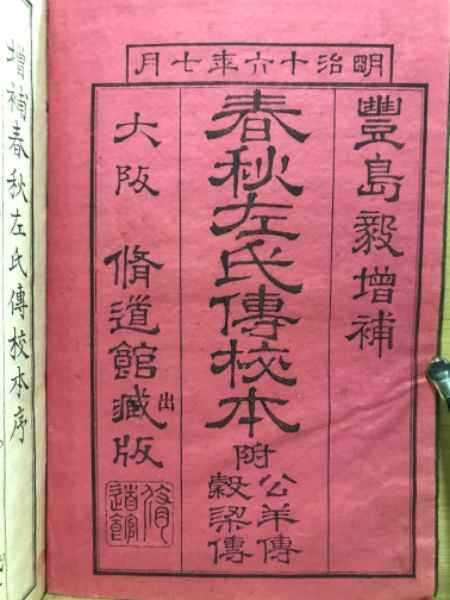 明治十六年七月
豐島毅增補
春秋左氏傳校本
附
公羊傳
穀梁傳
大阪 脩道館藏版
出
脩道館
增補春秋左氏傳校本序